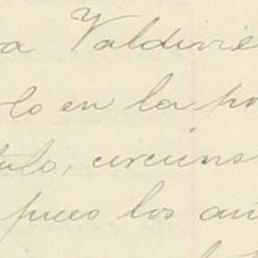 a Valdivie
lo en la po
tulo, circuns
pues los añ